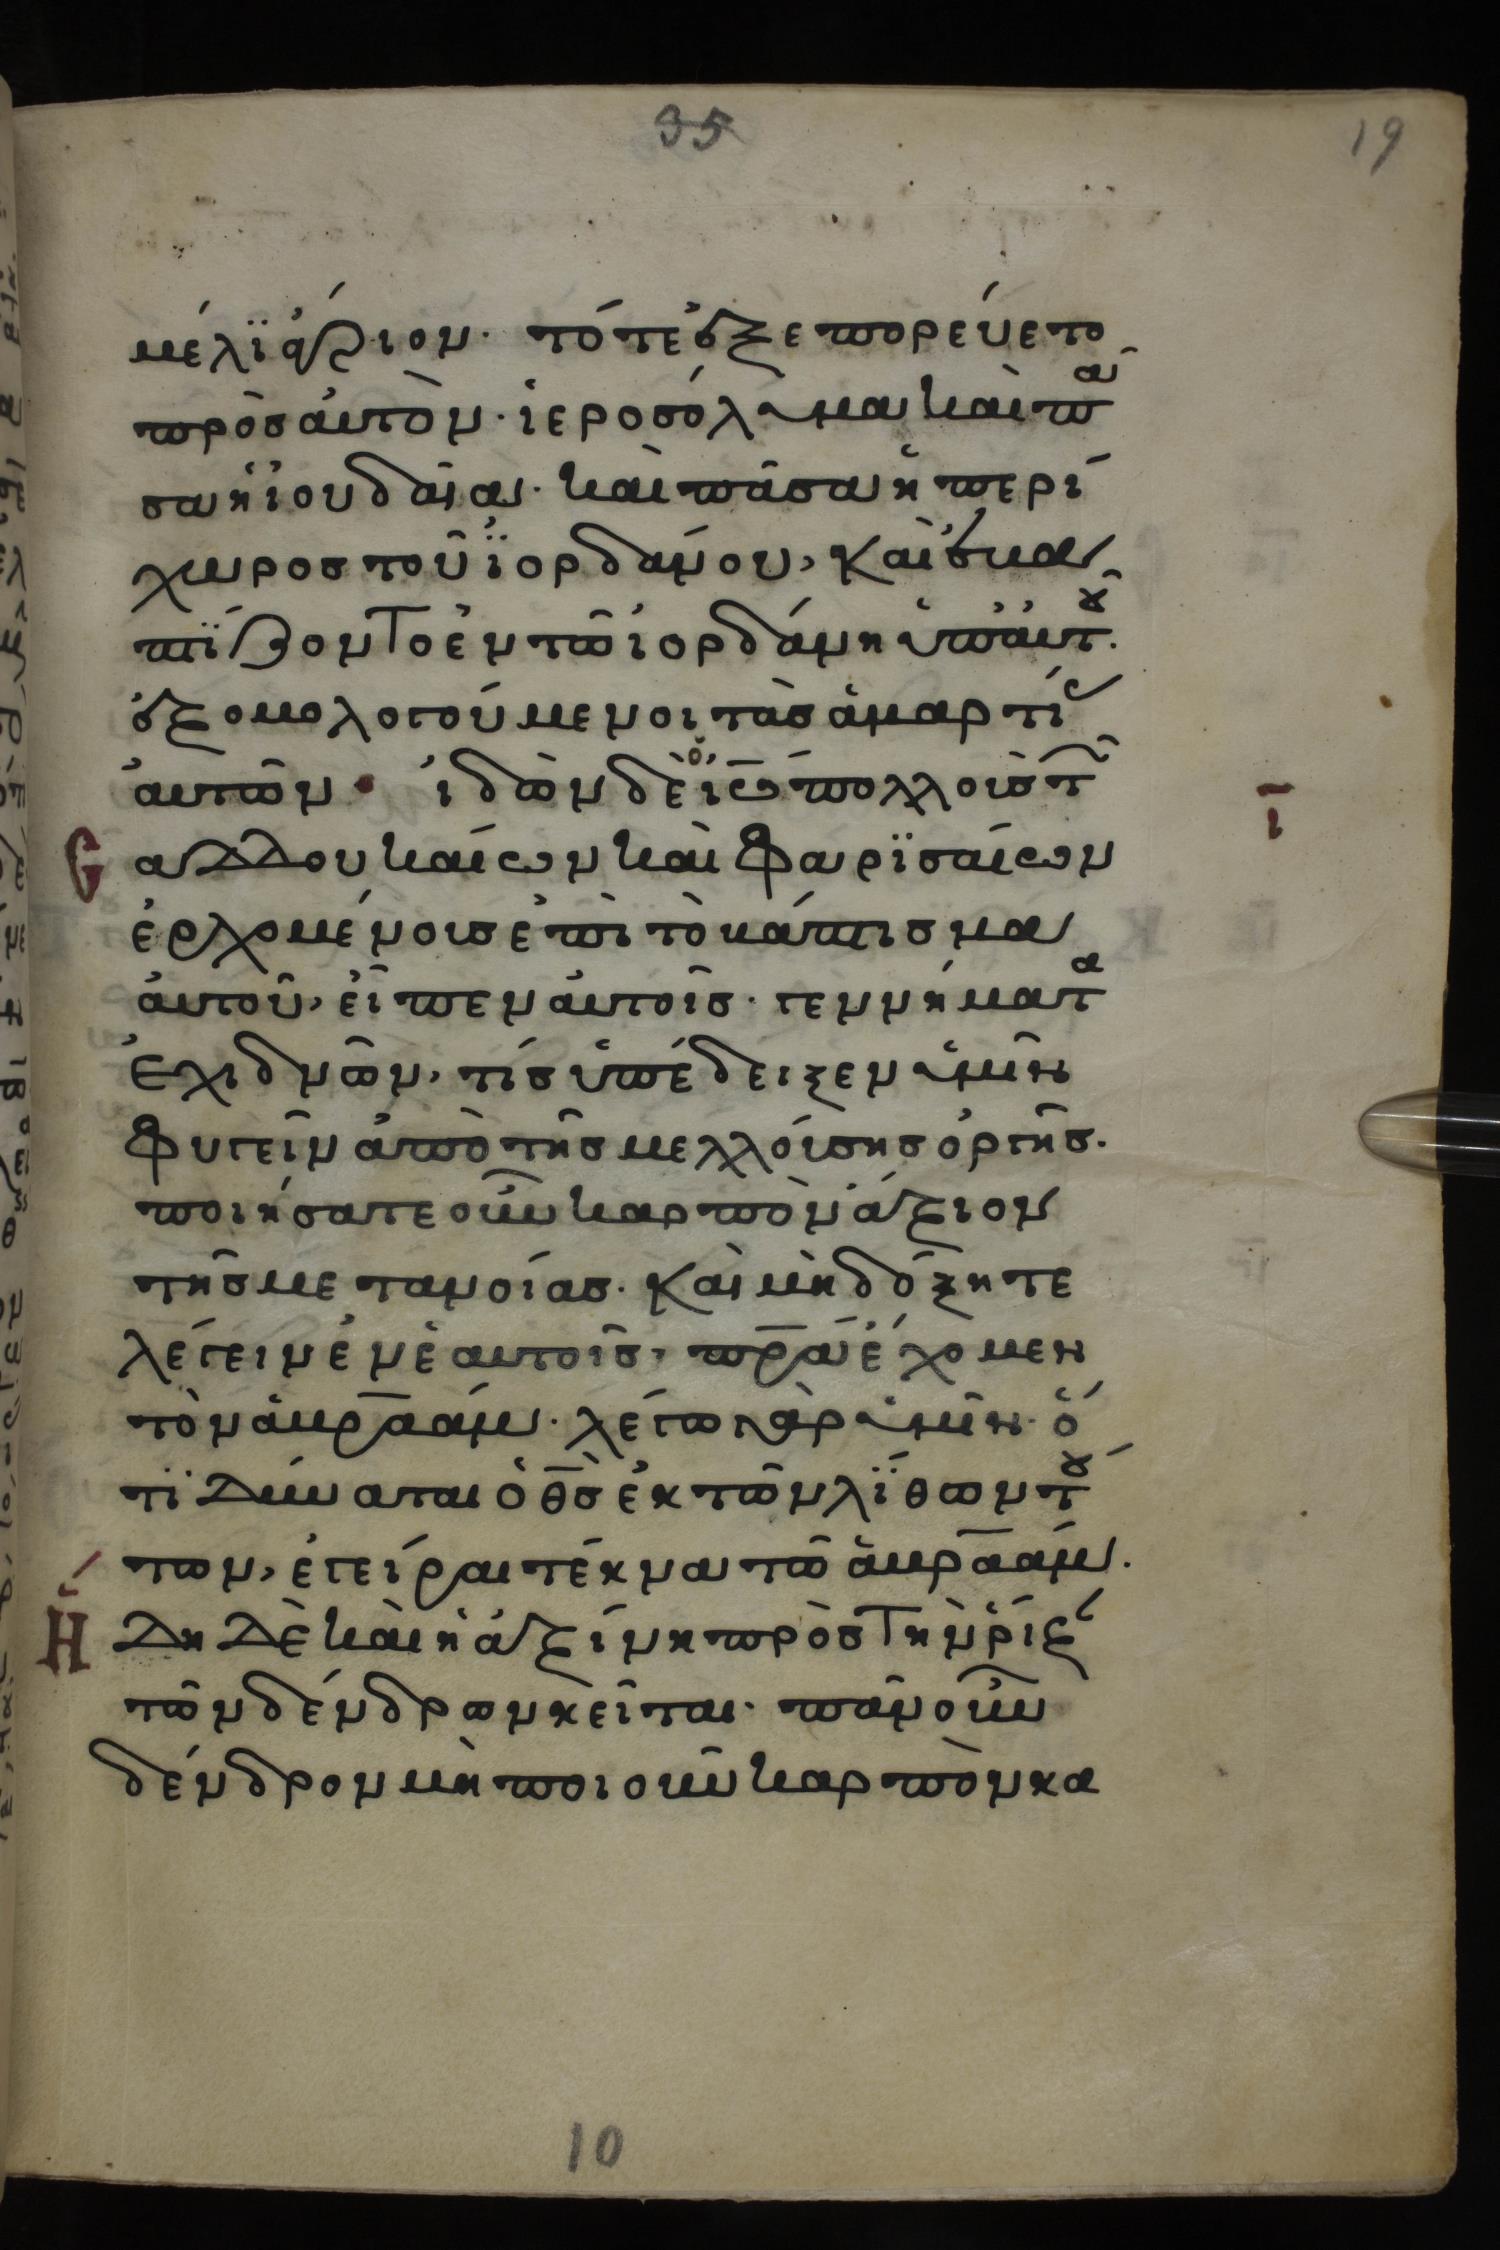 35
19
μέλϊ ἄγριον· τότε ἐξεπορεύετο
πρὸσ ἀυτὸν· ἱεροσόλυμα καὶ πᾶ
σα ἡ ἰουδαῖα· καὶ πᾶσα ἡ περί
χωροσ τοῦ ἰορδάνου, καὶ ἐβα
πτίζοντο ἐν τῶ ἰορδάνη ὑπ' ἀυτοῦ·
ἐξομολογούμενοι τὰσ ἁμαρτί
ἀυτῶν· ἰδὼν δὲ ὁ ἰω̅ πολλοὺσ τῶν
ι̅
Σαδδουκαίων καὶ φαρϊσαίων
ἐρχομένουσ ἐπὶ τὸ βάπτισμα
ἀυτοῦ, εἶπεν ἀυτοῖσ· γεννήματα
ἐχιδνῶν, τίσ ὑπέδειξεν ὑμῖν
φυγεῖν ἀπὸ τῆσ μελλούσησ ὀργῆσ·
ποιήσατε οὖν καρπὸν ἄξιον
τῆσ μετανοίασ· καὶ μὴ δόξητε
λέγειν ἐν ἑαυτοῖσ, πρ̅α ἔχομεν
τὸν ἁβρααμ· λέγω γὰρ ὑμῖν· ὅ
τι δύναται ὁ θ̅σ ἐκ τῶν λίθων τού
των, ἐγείραι τέκνα τῶ ἁβρααμ·
Ἤδη δὲ καὶ ἡ ἀξίνη πρὸσ τὴν ῥίζ
τῶν δένδρων κεῖται· πᾶν οὖν
δένδρον μὴ ποιοῦν καρπὸν κα
10